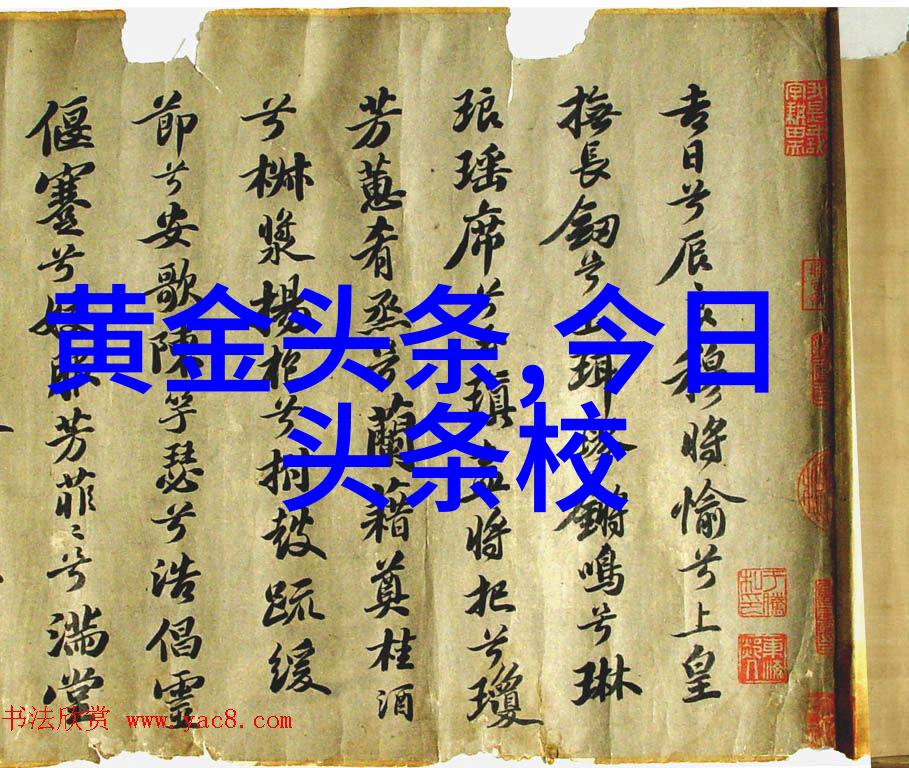 吉日兮辰良穆將愉兮上皇
撫長劒兮玉珥璆鏘鳴兮琳
琅瑶席兮玉瑱盍將把兮瓊
芳蕙肴烝兮蘭藉奠桂酒
兮椒漿揚枹兮拊鼓疏緩
節兮安歌陳竽瑟兮浩倡靈
偃蹇兮姣服芳菲〻兮滿堂
黄金头条,今日
头条校
书法欣赏 www.yac8.com